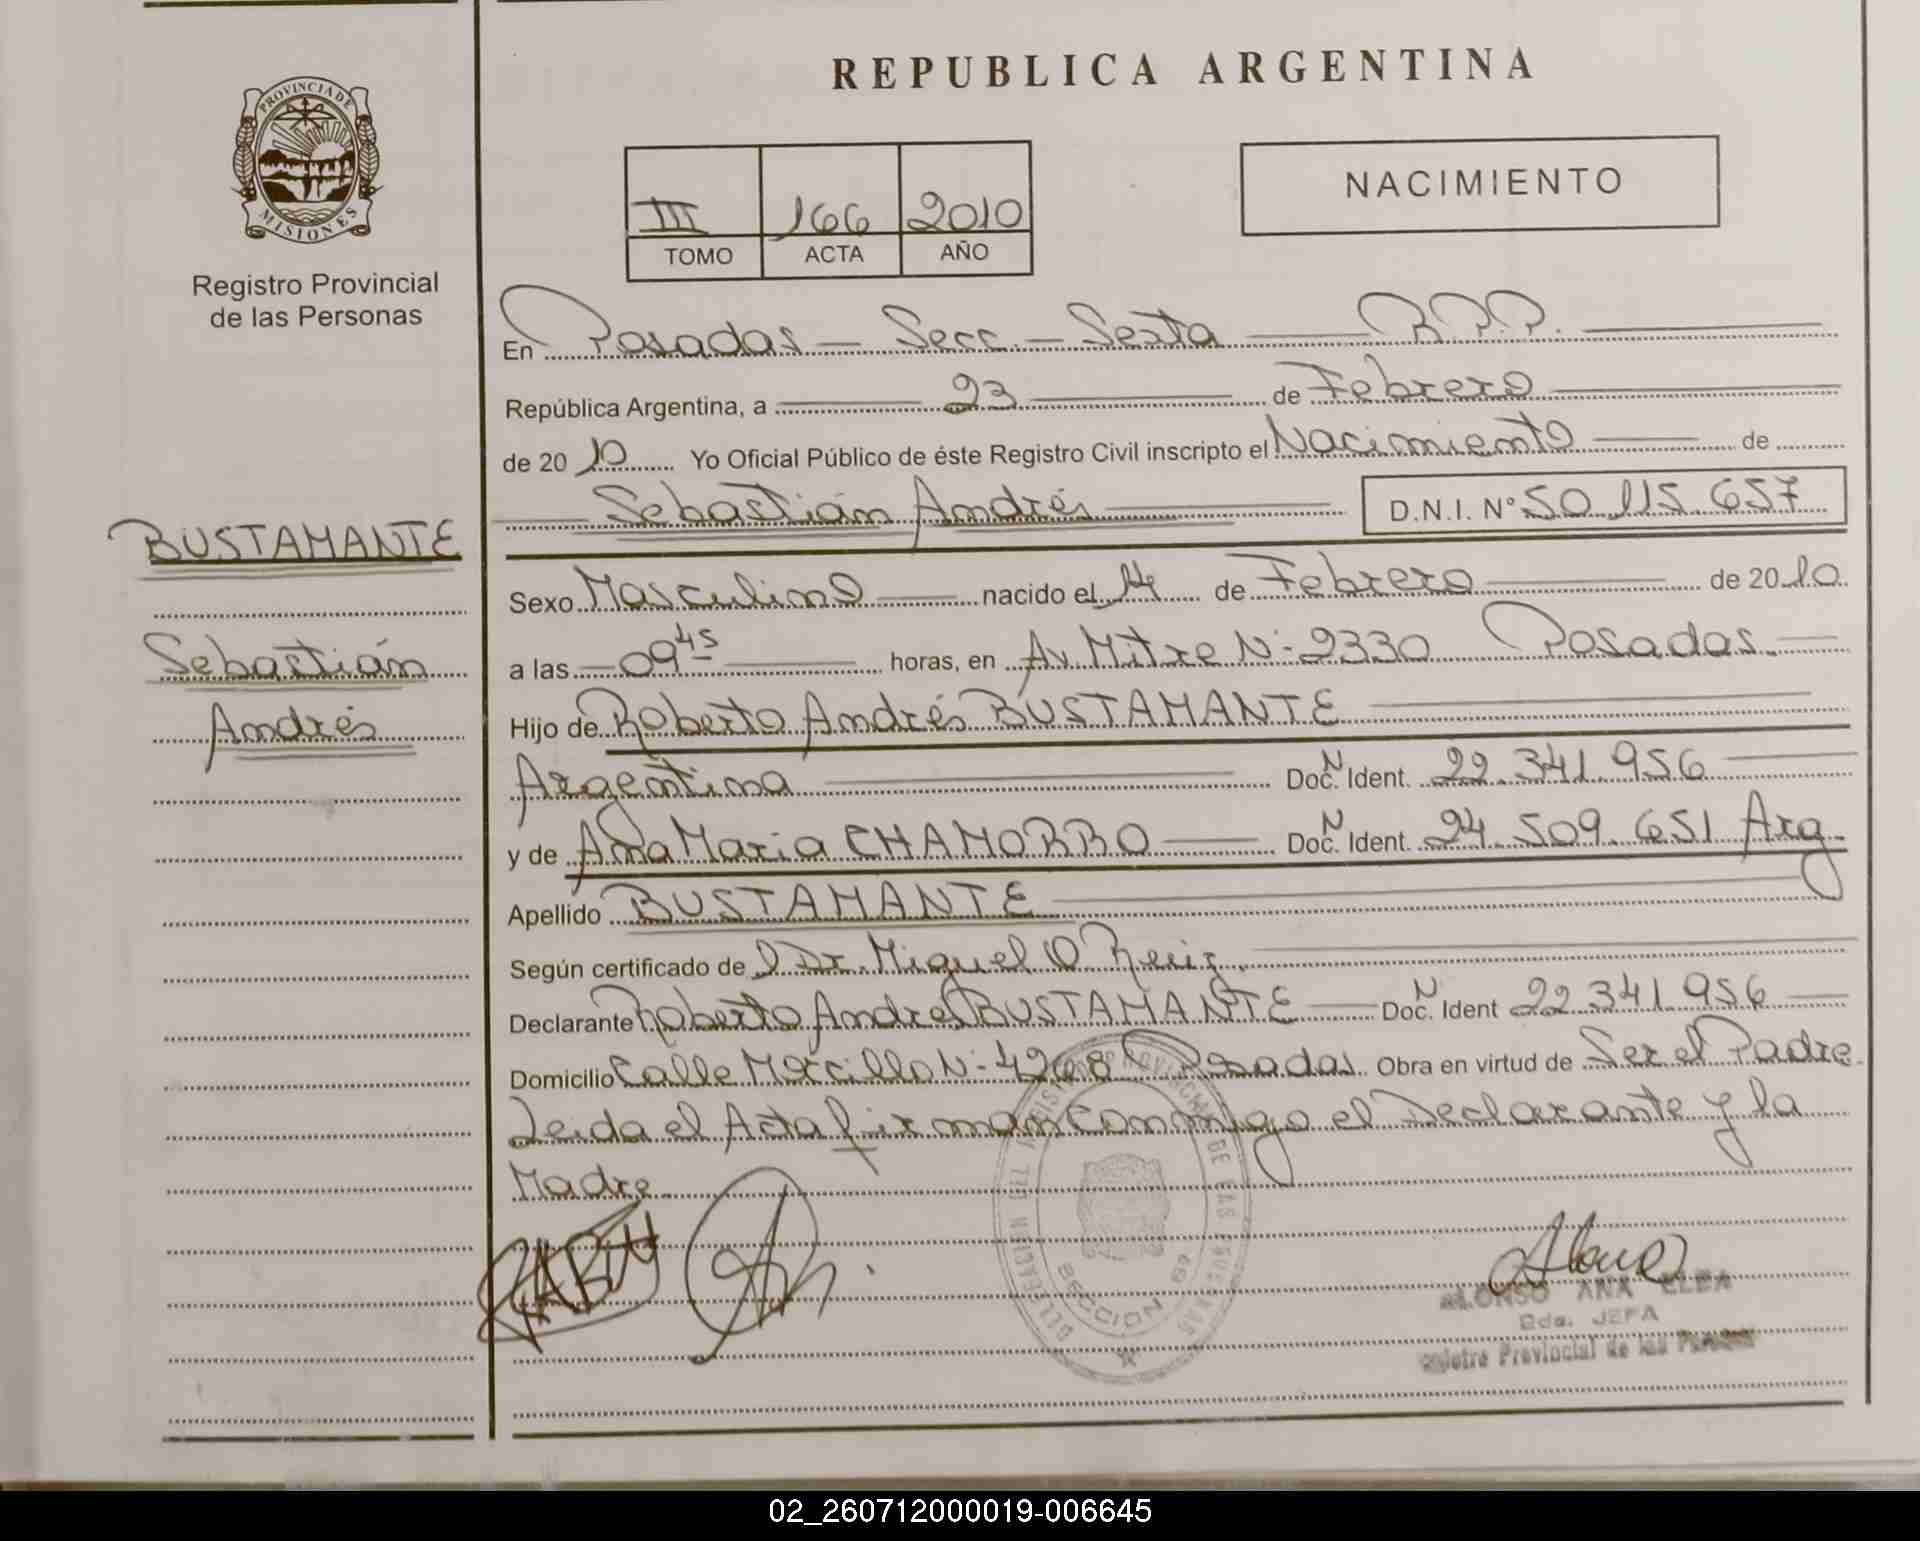 REPUBLICA ARGENTINA
PROVINCIA DE
MISIONES
Registro Provincial
de las Personas
III 166 2010
TOMO ACTA AÑO
NACIMIENTO
BUSTAMANTE
Sebastián
Andrés
En Posadas - Secc. - Sexta R.P.P.
República Argentina, a 23 de Febrero
de 2010 Yo Oficial Público de éste Registro Civil inscripto el Nacimiento de
Sebastián Andrés D.N.I. Nº 50.115.657
Sexo Masculino nacido el 14 de Febrero de 2010
a las 09 45 horas, en Av. Mitre N: 2330 Posadas.
Hijo de Roberto Andrés BUSTAMANTE
Argentina Doc. N Ident. 22.341.956
y de Ana Maria CHAMORRO Doc. N Ident. 24.509.651 Arg
Apellido BUSTAMANTE
Según certificado de l Dr. Miguel O
Declarante Roberto Andres BUSTAMANTE Doc. N Ident 22.341.956
Domicilio Calle N: 4268 Posadas. Obra en virtud de Ser el Padre.
Leida el Acta firman conmigo el Declarante y la
Madre.
DELEGACION SECCION DE LAS
ALONSO ANA ELBA
JEFA
Provincial de las
02_260712000019-006645